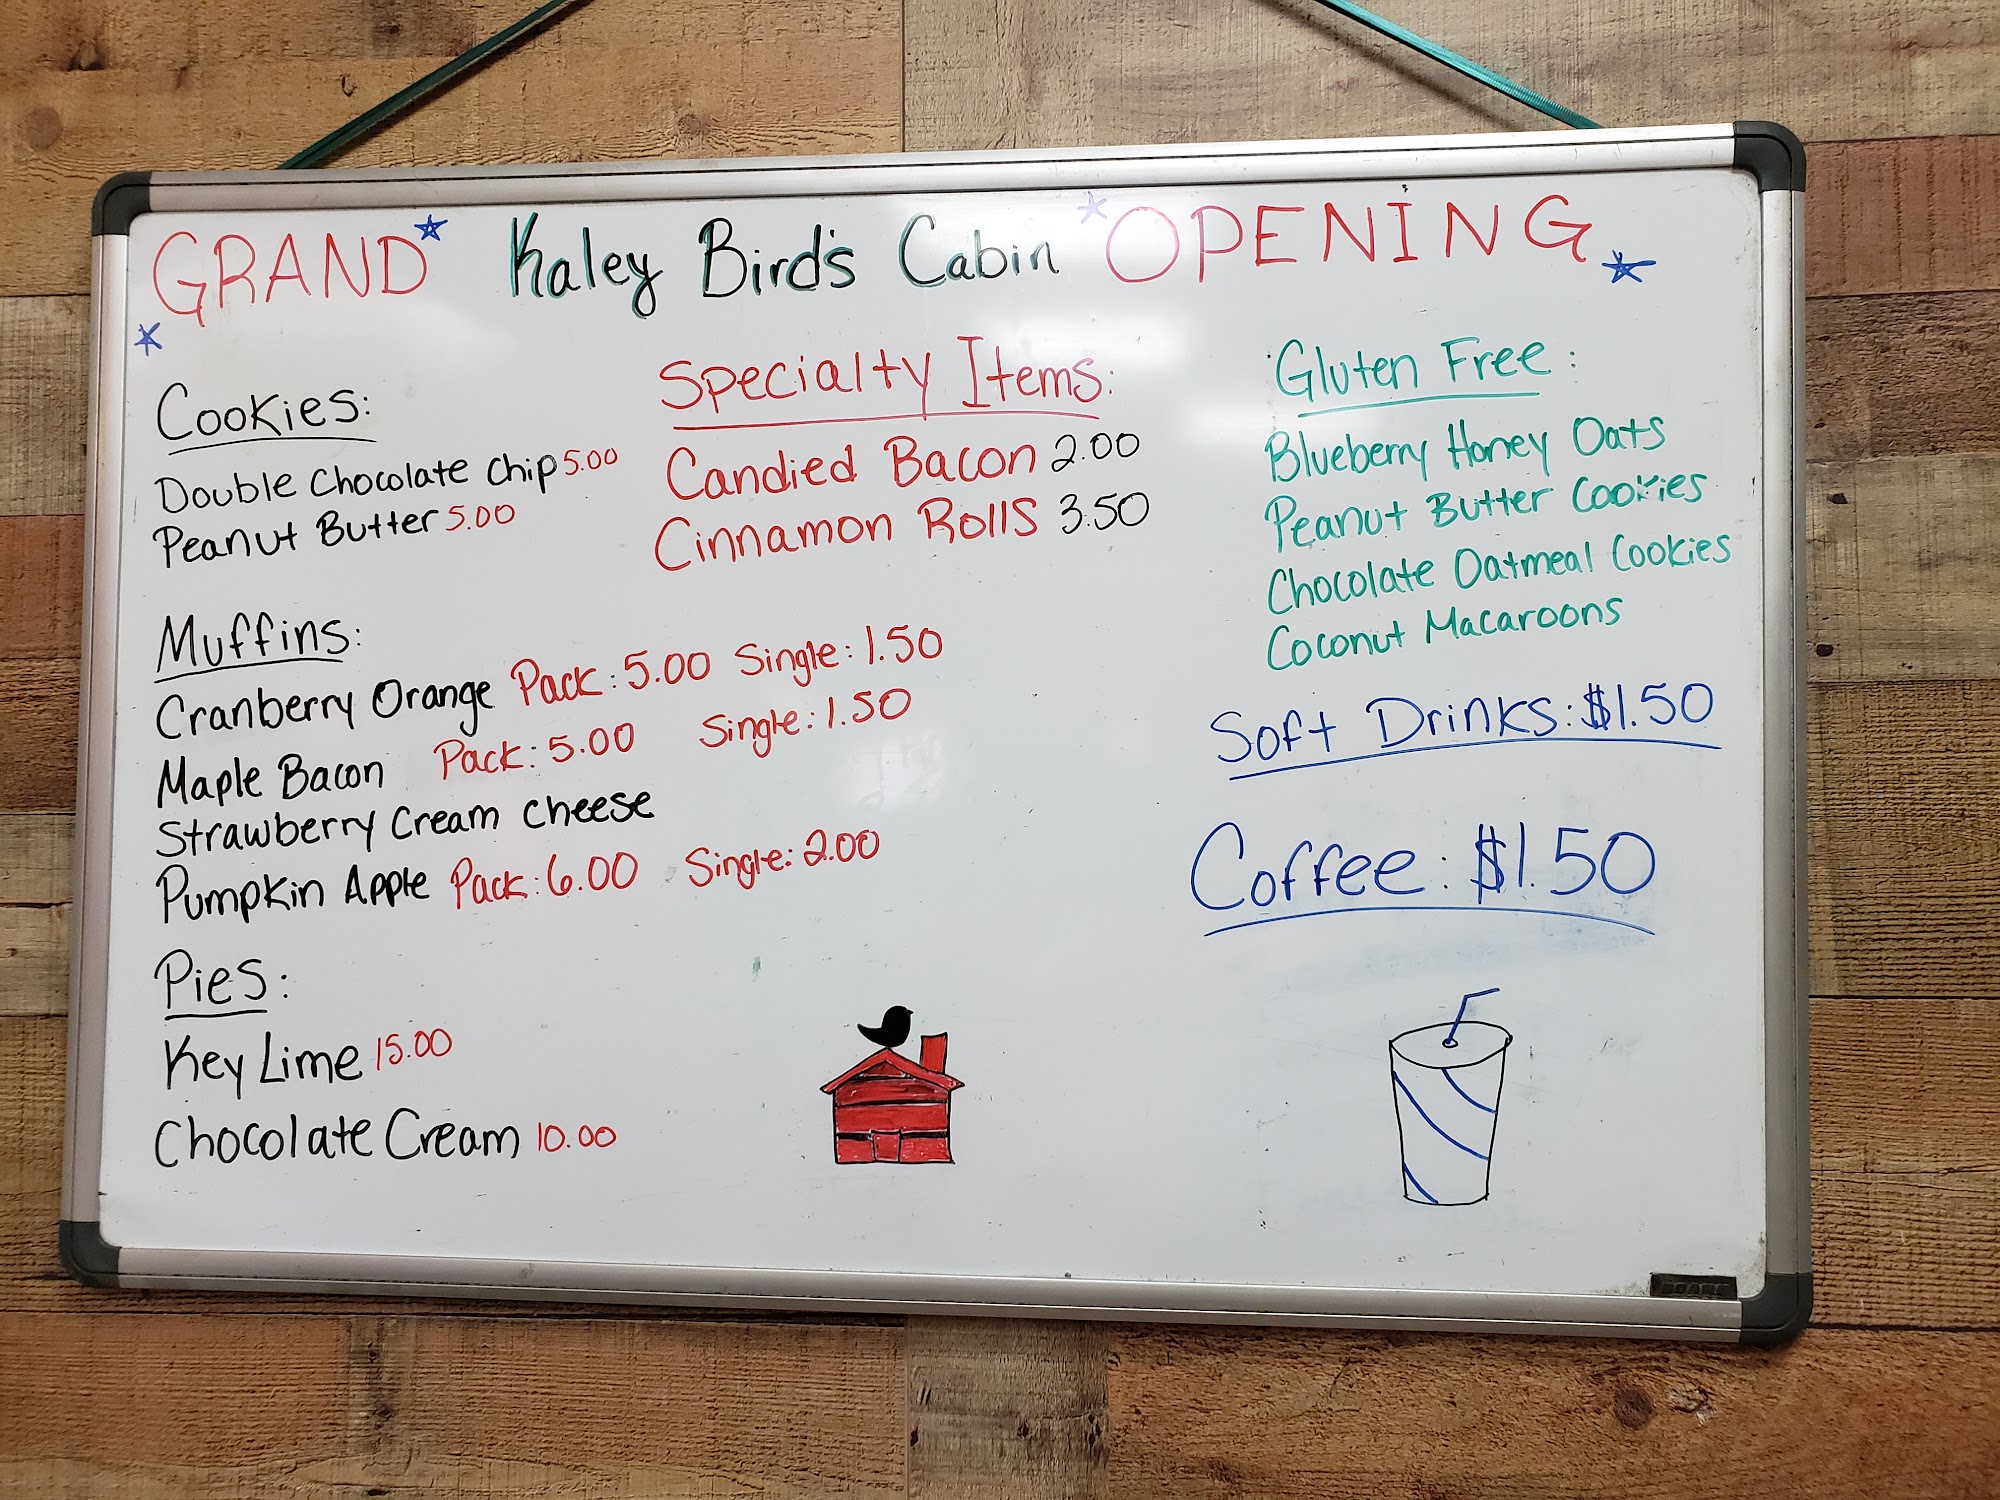 GRAND Kaley Bird's Cabin OPENING
Cookies:
Double Chocolate Chip 5.00
Peanut Butter 5.00
Muffins:
Cranberry Orange Pack: 5.00 Single: 1.50
Maple Bacon Pack: 5.00 Single: 1.50
Strawberry Cream Cheese
Pumpkin Apple Pack: 6.00 Single: 2.00
Pies:
Key Lime 15.00
Chocolate Cream 10.00
Specialty Items:
Candied Bacon 2.00
Cinnamon Rolls 3.50
Gluten Free:
Blueberry Honey Oats
Peanut Butter Cookies
Chocolate Oatmeal Cookies
Coconut Macaroons
Soft Drinks: $1.50
Coffee: $1.50